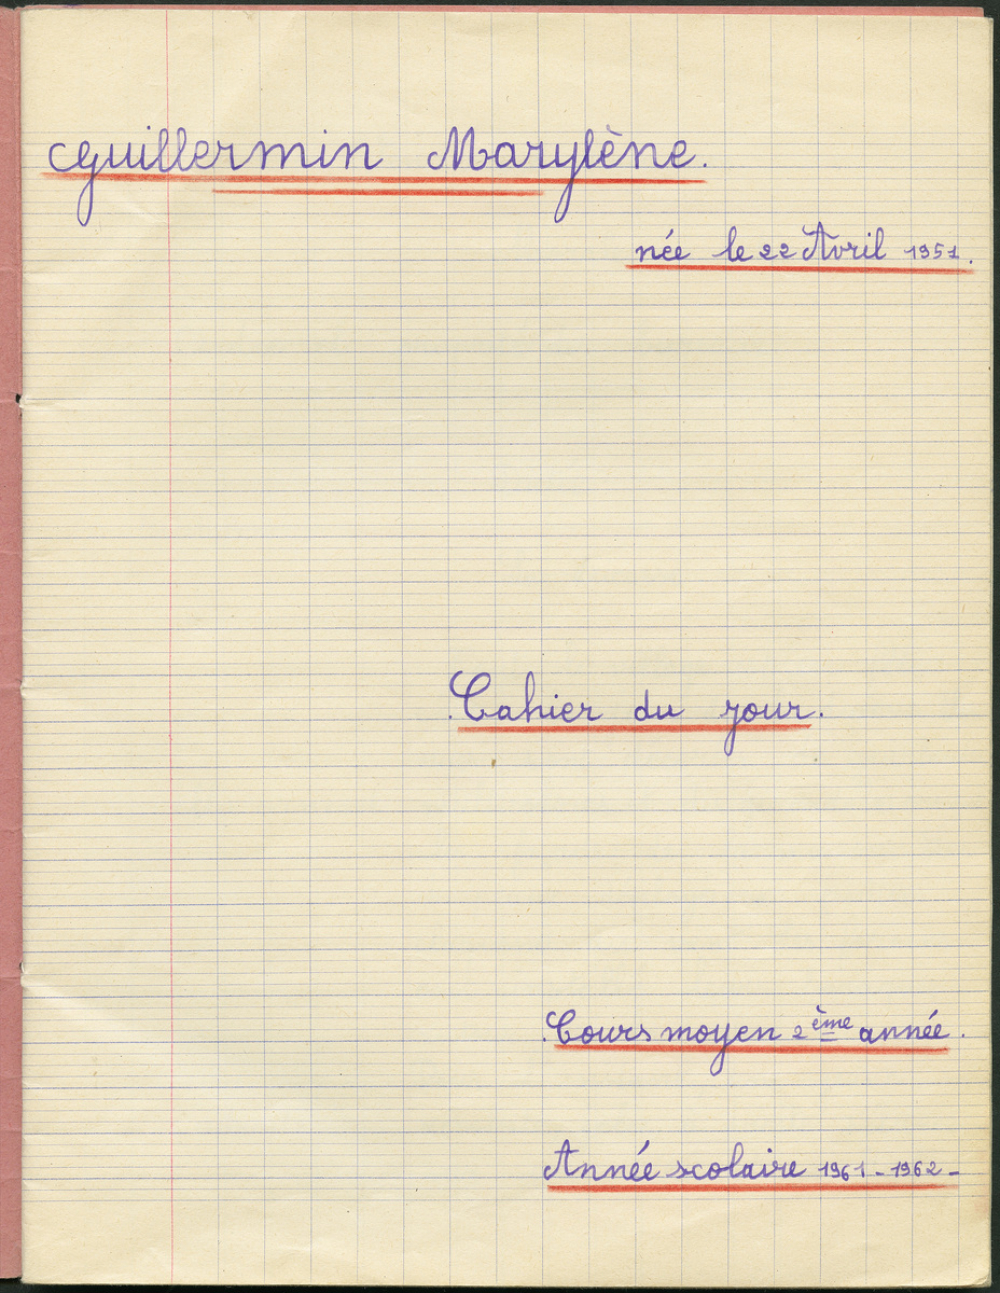 Guillermin Marylène.
née le 22 Avril 1951.
Cahier du jour.
Cours moyen 2ème année.
Année scolaire 1961-1962-